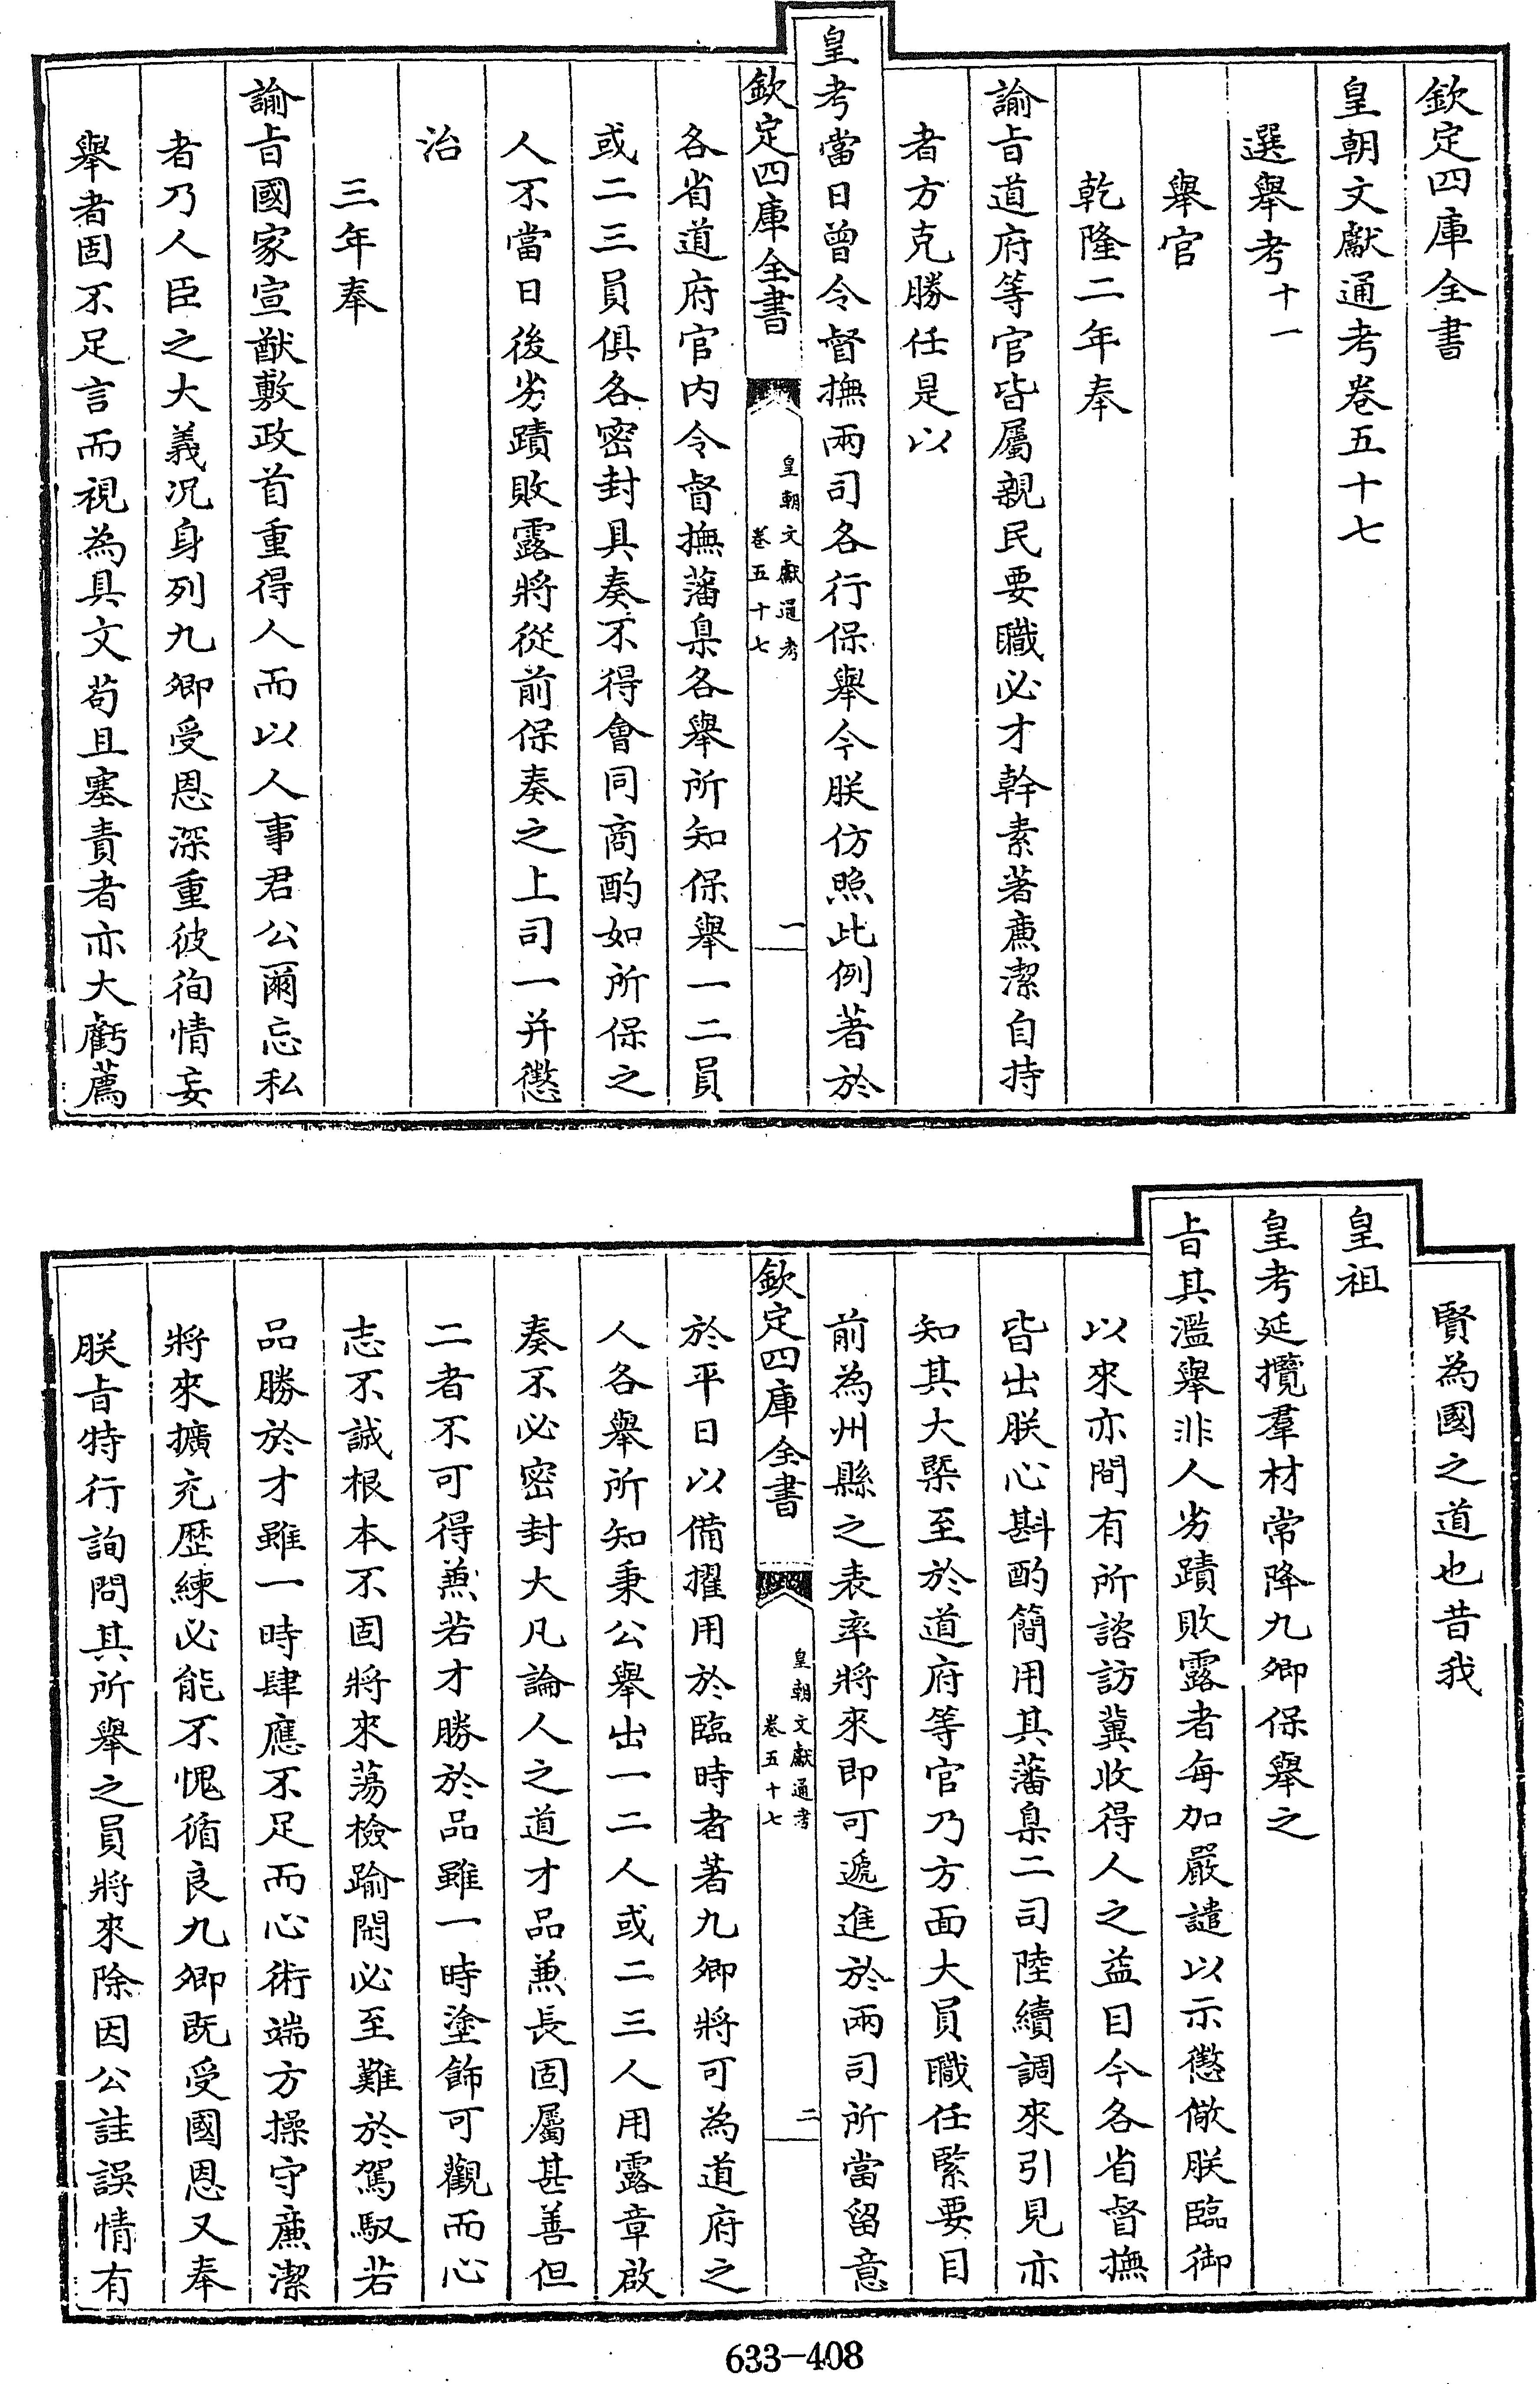 欽定四庫全書
皇朝文獻通考卷五十七
選舉考十一
舉官
乾隆二年奉
諭㫖道府等官皆屬親民要職必才幹素著㢘潔自持
者方克勝任是以
皇考當日曾令督撫兩司各行保舉今朕仿照此例著於
欽定四庫全書
皇朝文獻通考
卷五十七
一
各省道府官内令督撫藩臬各舉所知保舉一二員
或二三員俱各密封具奏不得會同商酌如所保之
人不當日後劣蹟敗露將從前保奏之上司一并懲
治
三年奉
諭㫖國家宣猷敷政首重得人而以人事君公爾忘私
者乃人臣之大義况身列九卿受恩深重彼徇情妄
舉者固不足言而視為具文苟且塞責者亦大虧薦
賢為國之道也昔我
皇祖
皇考延攬羣材常降九卿保舉之
㫖其濫舉非人劣蹟敗露者每加嚴譴以示懲儆朕臨御
以來亦間有所諮訪冀收得人之益目今各省督撫
皆出朕心斟酌簡用其藩臬二司陸續調來引見亦
知其大槩至於道府等官乃方面大員職任緊要目
前為州縣之表率將來即可遞進於兩司所當留意
欽定四庫全書
皇朝文獻通考
卷五十七
二
於平日以備擢用於臨時者著九卿將可為道府之
人各舉所知秉公舉出一二人或二三人用露章啟
奏不必密封大凡論人之道才品兼長固屬甚善但
二者不可得兼若才勝於品雖一時塗飾可觀而心
志不誠根本不固將來蕩檢踰閑必至難於駕馭若
品勝於才雖一時肆應不足而心術端方操守㢘潔
將來擴充歷練必能不愧循良九卿既受國恩又奉
朕㫖特行詢問其所舉之員將來除因公詿誤情有
633-408